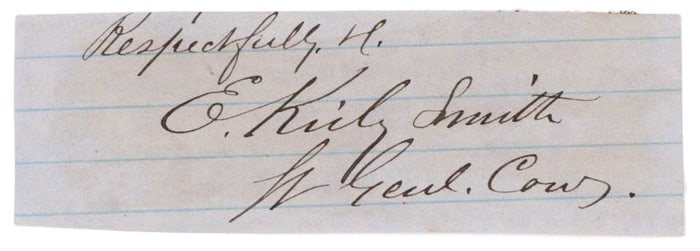 Respectfully, Yr.
E. Kirby Smith
Lt Genl. Comg.